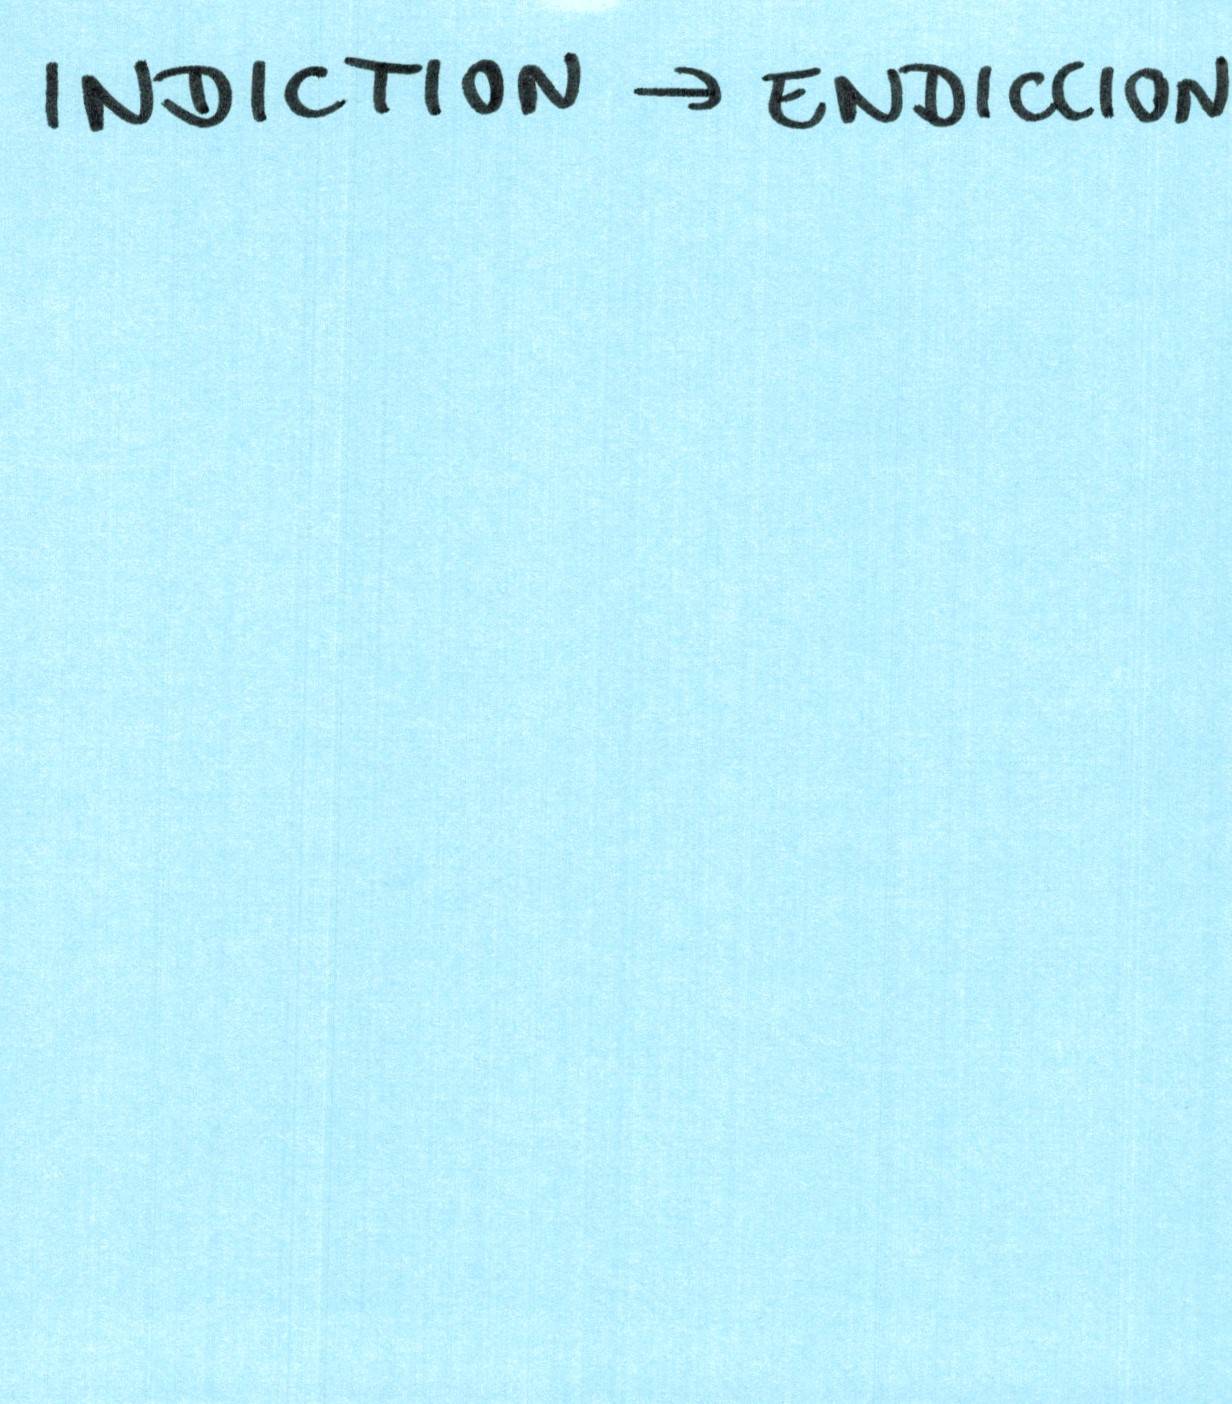 INDICTION → ENDICCION